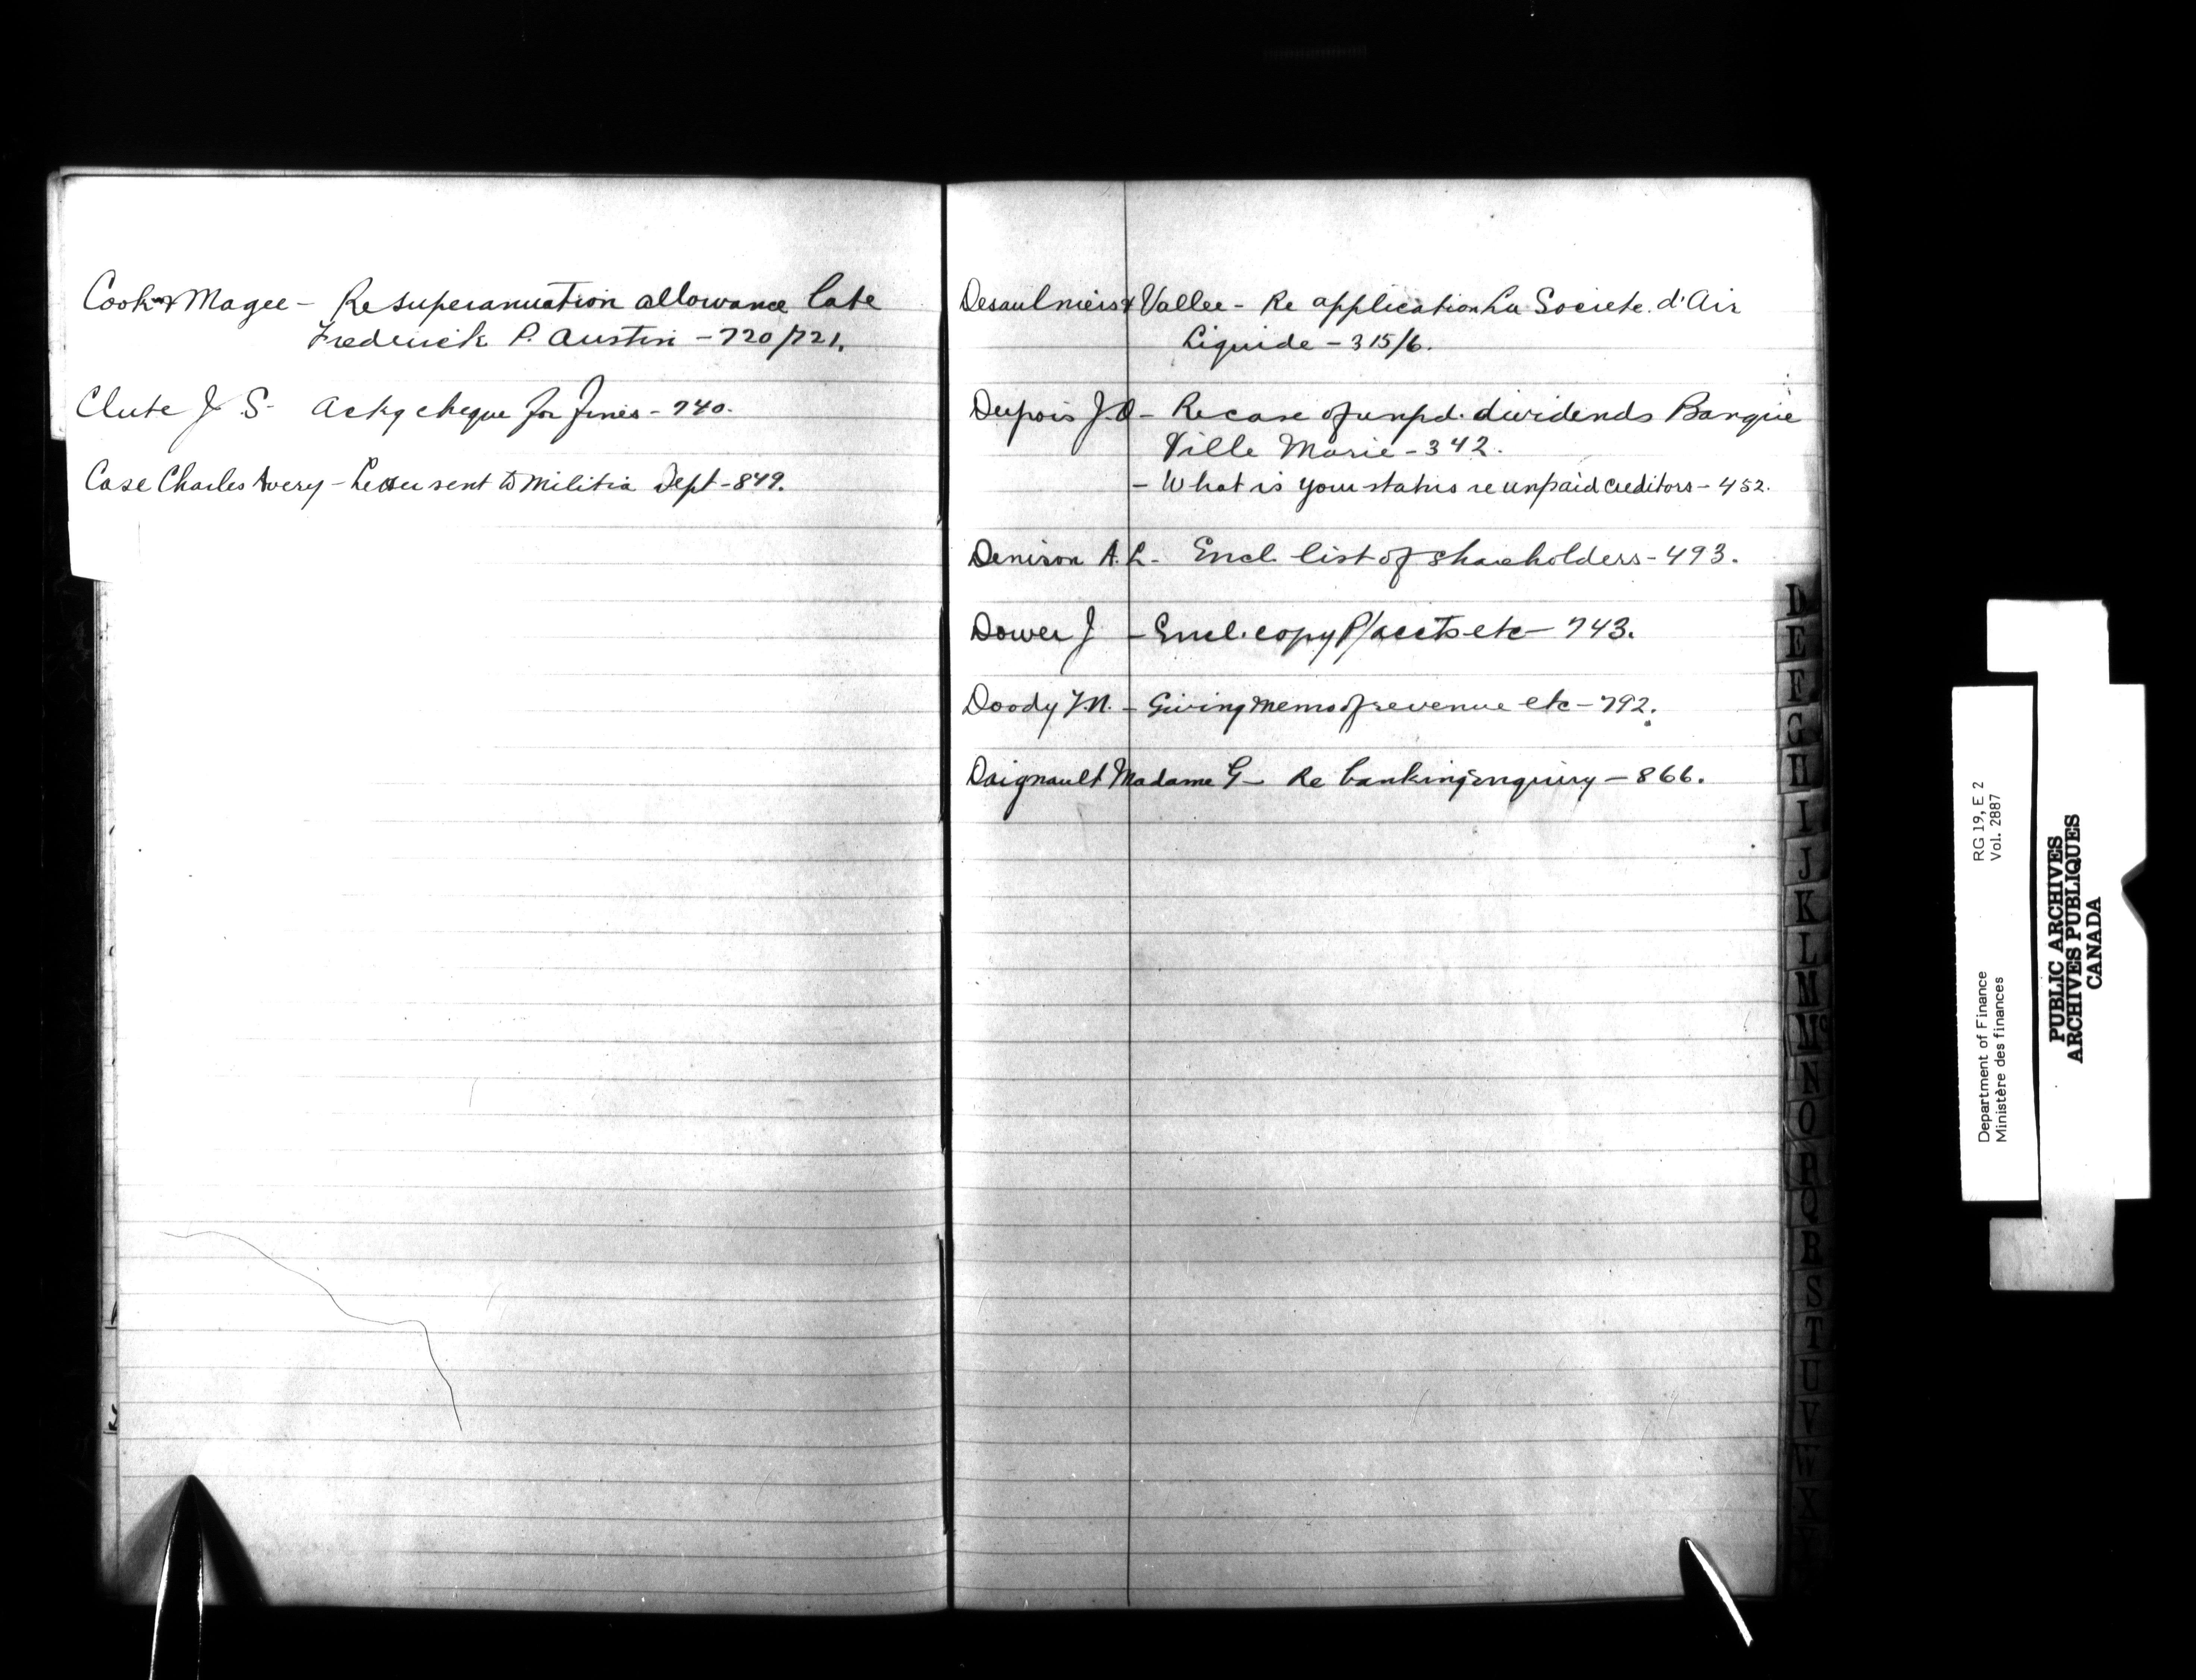 Cook & Magee - Re superanuation allowance late
Frederick P. Austin - 720/721.
Clute J. S. Ackg cheque for fines - 740.
Case Charles Avery - Letter sent to Militia Dept - 849.
Desaulniers & Vallee - Re application La Societe d'Air
Liquide - 315/6.
Dupois J.O - Re case of unpd. dividends Banque
Ville Marie - 342.
- What is your status re unpaid creditors - 452.
Denison A.L. Encl. list of shareholders - 493.
Dower J - Encl. copy P/accts etc - 743.
Doody - Giving memo of revenue etc - 792.
Daignault Madame G - Re banking enquiry - 866.
D
E
F
G
H
I
J
K
L
M
Mc
N
O
P
Q
R
S
T
U
V
W
X
Department of Finance RG 19, E 2
Ministère des finances Vol. 2887
PUBLIC ARCHIVES
ARCHIVES PUBLIQUES
CANADA